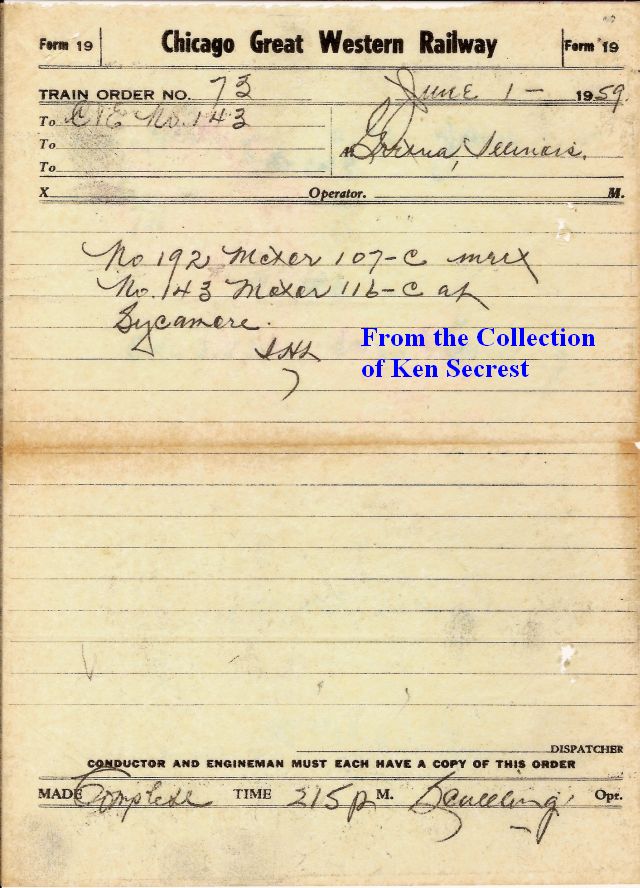 Form 19 Chicago Great Western Railway Form 19
TRAIN ORDER NO. 73 June 1- 1959
To C&E No. 143
To At Illinois.
To
X Operator. M.
No 192 Motor 107-C meet
No. 143 Motor 116-C at
Sycamore.
From the Collection
of Ken Secrest
DISPATCHER
CONDUCTOR AND ENGINEMAN MUST EACH HAVE A COPY OF THIS ORDER
MADE Complete TIME 215 P M. Opr.